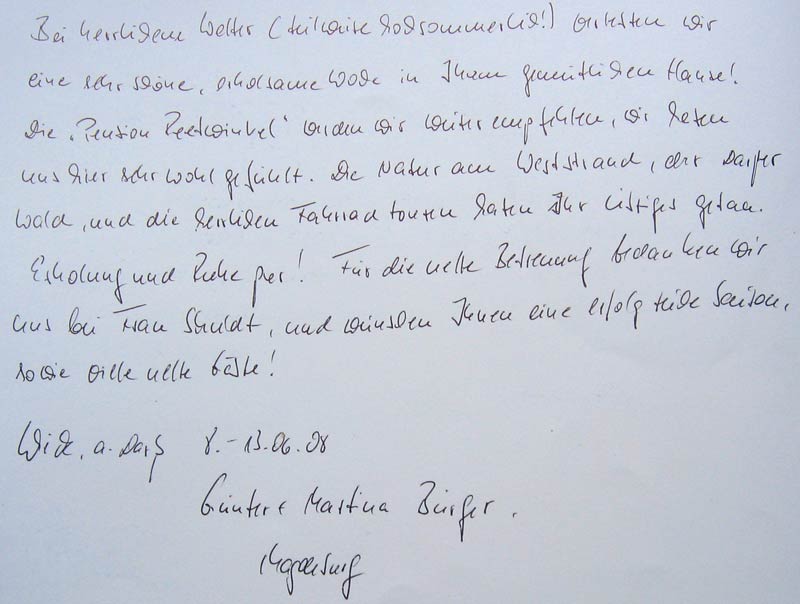 Bei herrlichem Wetter (teilweise hochsommerlich!) erlebten wir
eine sehr schöne, erholsame Woche in Ihrem gemütlichen Hause!
Die „Pension Reetwinkel“ werden wir weiterempfehlen, wir haben
uns hier sehr wohl gefühlt. Die Natur am Weststrand, der Darßer
Wald, und die herrlichen Fahrradtouren haben Ihr übriges getan.
Erholung und Ruhe pur! Für die nette Betreuung bedanken wir
uns bei Frau Schuldt, und wünschen Ihnen eine erfolgreiche Saison,
sowie viele nette Gäste!
Wieck, a. Darß 8.-13.06.08
Günter + Martina Bürger.
Magdeburg